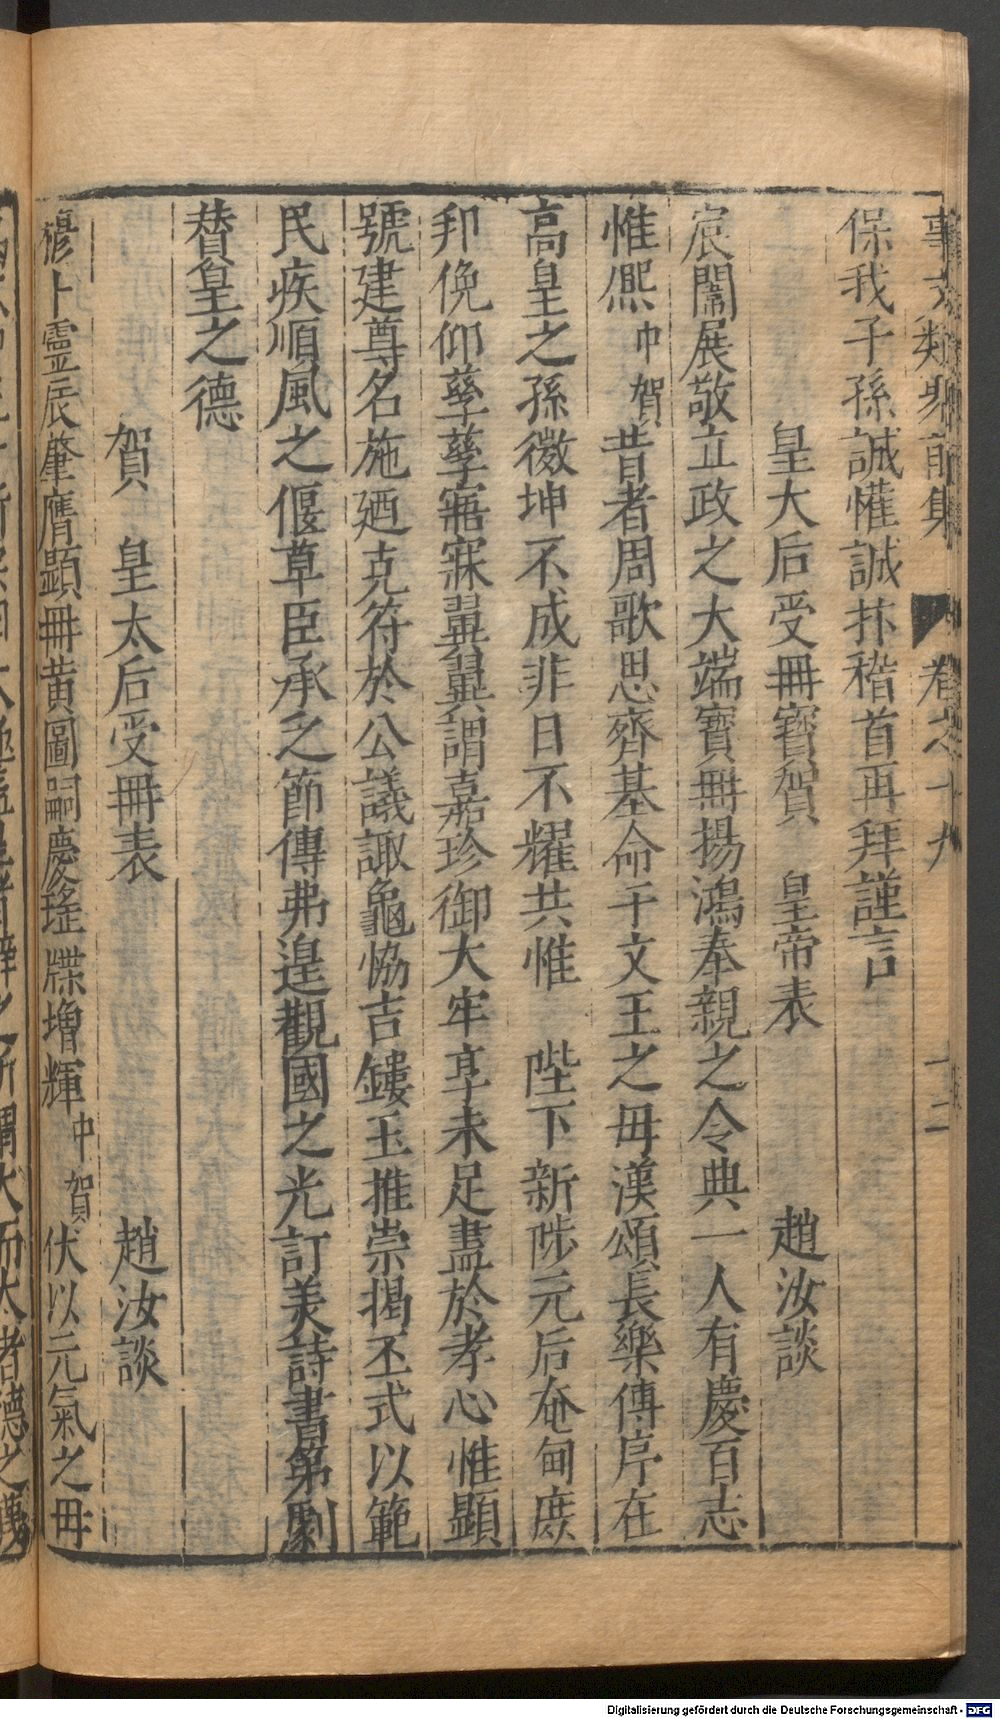 事文類聚前集 卷之十九 十二
保我子孫誠懽誠抃稽首再拜謹言
皇大后受冊寶賀 皇帝表 趙汝談
宸闈展敬立政之大端寶冊揚鴻奉親之令典一人有慶百志
惟熈中賀昔者周歌思齊基命于文王之毋漢頌長樂傳序在
高皇之孫徽坤不成非日不耀共惟 陛下新陟元后奄甸庶
邦俛仰孳孳寤寐翼翼謂嘉珍御大牢享未足盡於孝心惟顯
號建尊名施廼克符於公議諏龜恊吉鏤玉推崇揭丕式以範
民疾順風之偃草臣承乏節傳弗遑觀國之光訂美詩書第劇
賛皇之德
賀 皇太后受冊表 趙汝談
穆卜靈辰肇膺顯冊黃圖嗣慶瑤牒增輝中賀伏以元氣之毋